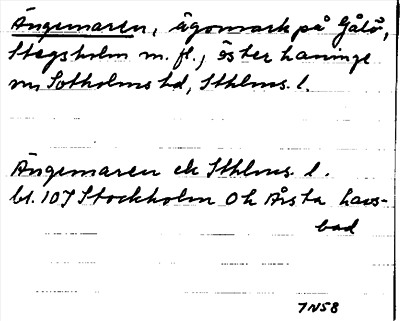 Ängsmaren, ägomark på Gålö,
Stegsholm m. fl., Österhaninge
sn, Sotholms hd, Sthlms. l.
Ängsmaren ek Sthlms. l.
bl. 107 Stockholm Oh Årsta havs-
bad
7N58